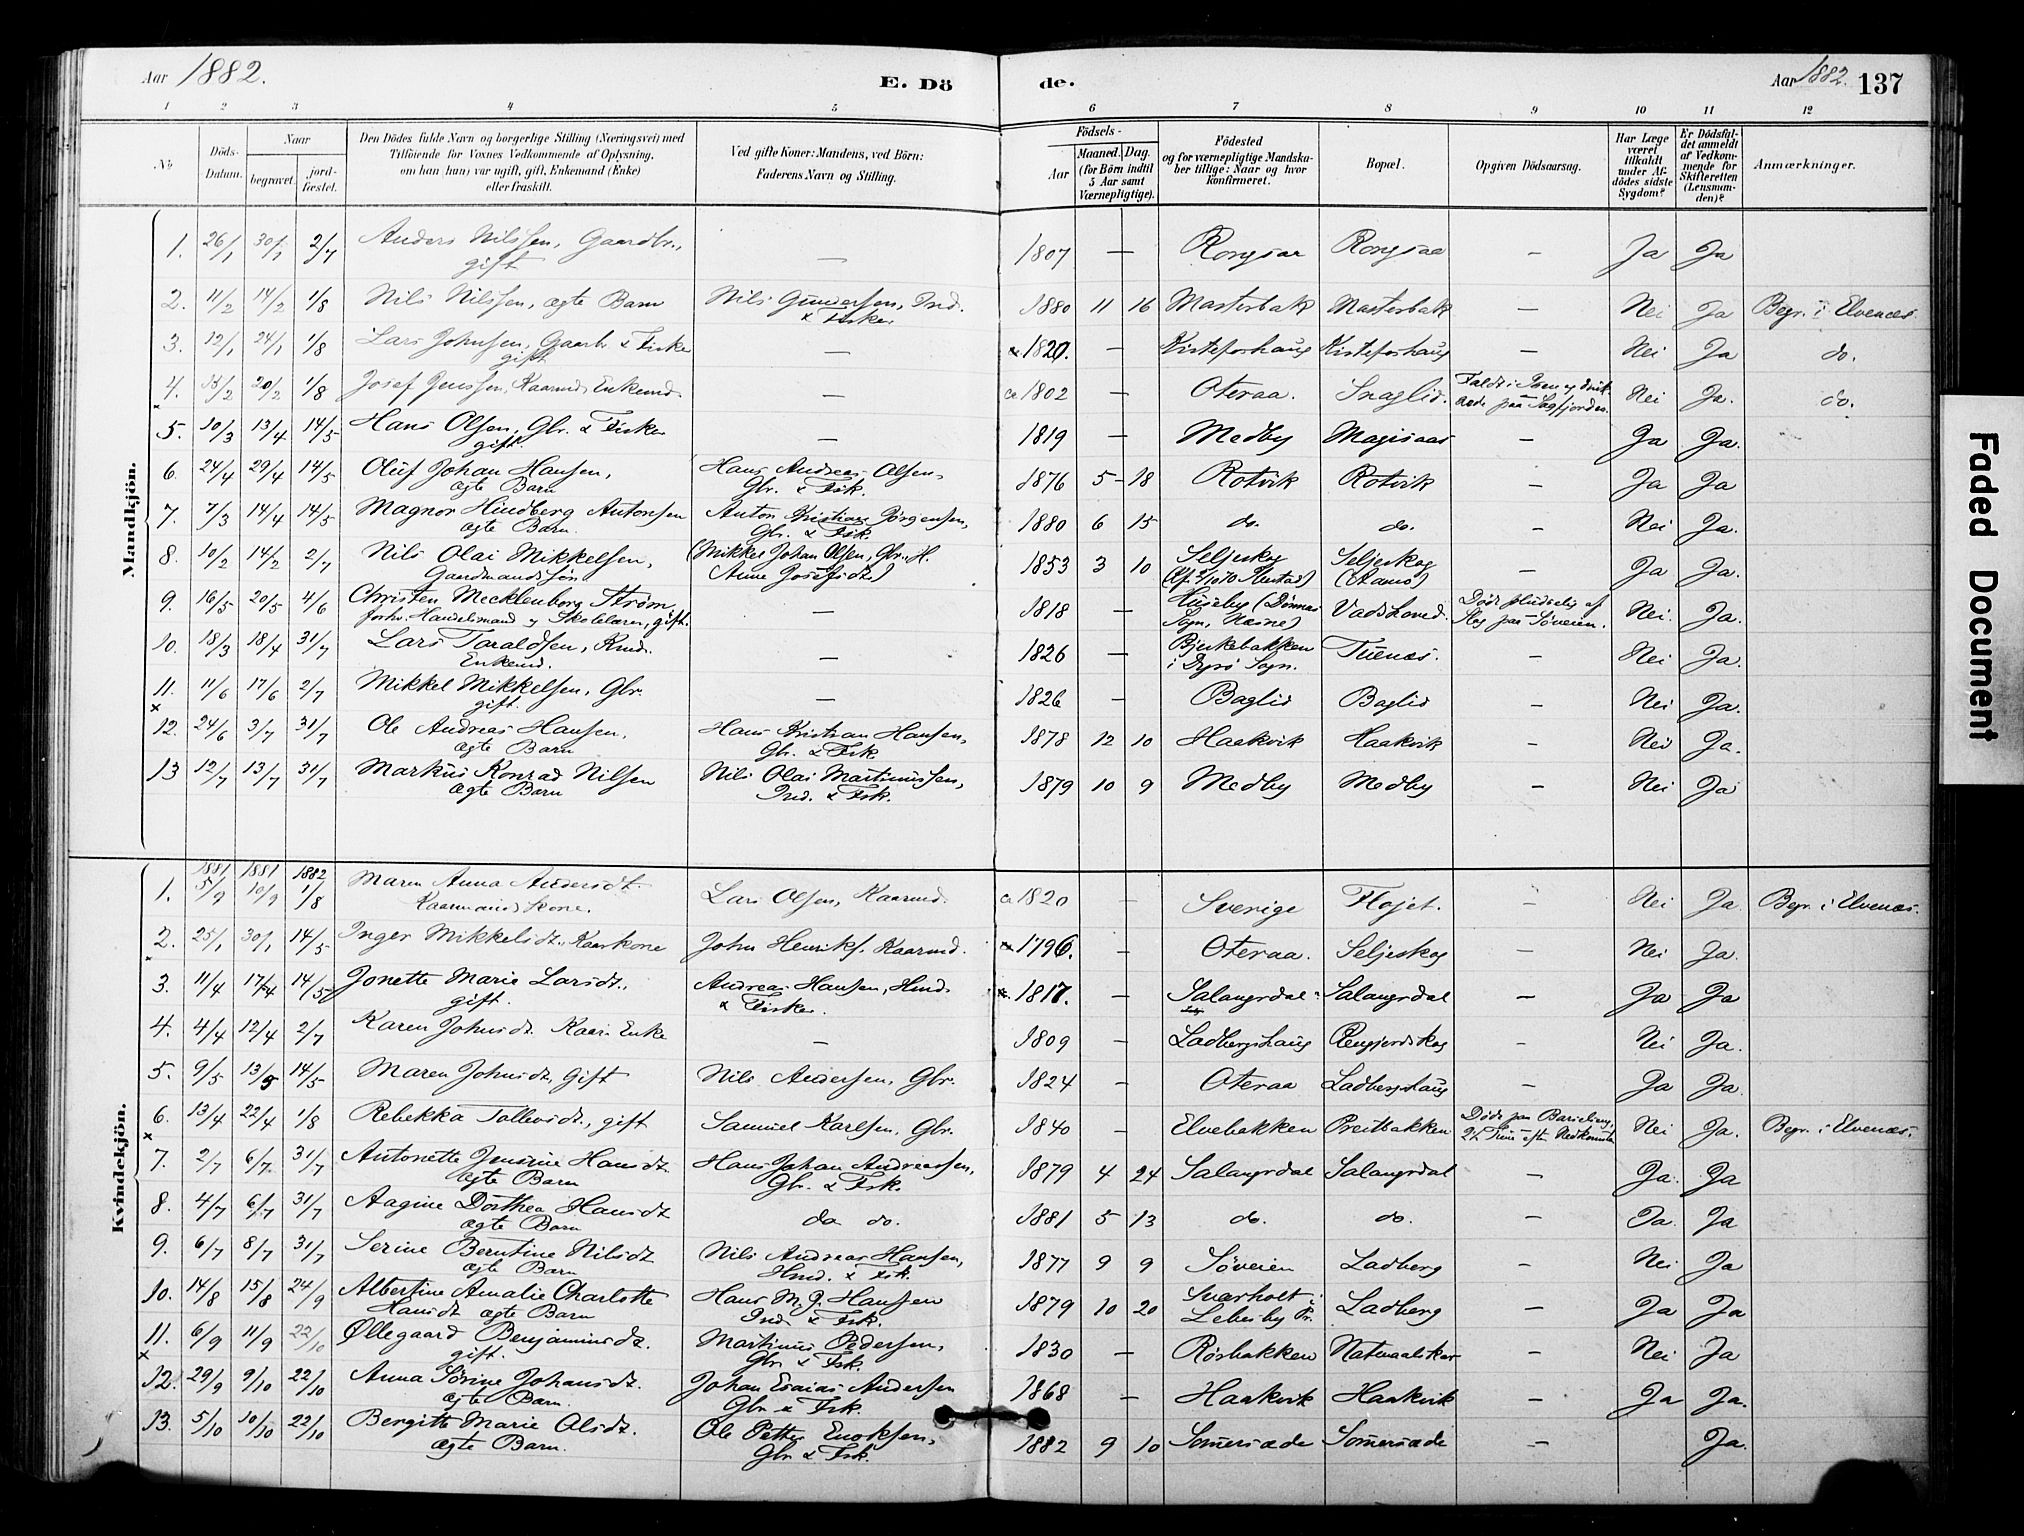 Aar 1882.
E. Dö de.
Aar 1882. 137
1 2 3 4 5 6 7 8 9 10 11 12
No
Döds-Datum.
Naar begravet. jordfæstet.
Den Dödes fulde Navn og borgerlige Stilling (Næringsvei) med Tilföiende for Voxnes Vedkommende af Oplysning, om han (hun) var ugift, gift, Enkemand (Enke) eller fraskilt.
Ved gifte Koner: Mandens, ved Börn: Faderens Navn og Stilling.
Födsels-
Aar Maaned. Dag. (for Börn indtil 5 Aar samt Værnepligtige).
Födested og for værnepligtige Mandskaber tillige: Naar og hvor konfirmeret.
Bopæl.
Opgiven Dödsaarsag.
Har Læge været tilkaldt under Afdödes sidste Sygdom?
Er Dödsfaldet anmeldt af Vedkommende for Skifteretten (Lensmanden)?
Anmærkninger.
Mandkjön.
1. 26/1 30/1 2/7 Anders Nilssen, Gaardbr., gift — 1807 — Rongsaa Rongsaa — Ja Ja
2. 11/2 14/2 1/8 Nils Nilssen, ægte Barn Nils Gundersen, Ind. & Fisker 1880 11 16 Masterbak Masterbak — Nei Ja Begr. i Elvenæs.
3. 12/1 24/1 1/8 Lars Johnsen, Gaarbr. & Fisker gift — 1820. — Kisteforshaug Kisteforshaug — Nei Ja do.
4. 15/2 20/2 1/8 Josef Jenssen, Kaarmd. Enkemd. — ca 1802 — Oteraa. Snaglid. Faldt i Isen og druknede paa Sagfjorden. Nei Ja. do.
5. 10/3 13/4 14/5 Hans Olsen, Gbr. & Fisker gift. — 1819 — Medby Magisaas — Ja Ja.
6. 24/4 29/4 14/5 Oluf Johan Hansen, ægte Barn Hans Andreas Olsen, Gbr. & Fsk. 1876 5 18 Rotvik Rotvik — Ja Ja
7. 7/3 14/4 14/5 Magnor Hindberg Antonsen ægte Barn Anton Kristian Jörgensen, Gbr. & Fsk. 1880 6 15 do. do. — Nei Ja.
8. 10/2 14/2 2/7 Nils Olai Mikkelsen, Gaardmandssön (Mikkel Johan Olsen, Gbr., H. Anne Josefsdtr) 1853 3 10 Seljeskog Seljeskog — Ja Ja.
9. 16/5 20/5 4/6 Christen Mecklenborg Strøm, forhv. Handelsmand og Skolelærer, gift. — 1818 — Huseby (Dønnes Sogn, Næsne) Døde pludselig af Slag paa Søveien. Nei. Ja.
10. 18/3 18/4 31/7 Lars Taraldsen, Kmd. Enkemd. — 1826 — Bjerkebakken i Dyrø Sogn. Tuenæs. — Nei Ja.
11. 11/6 17/6 2/7 Mikkel Mikkelsen, Gbr. gift. — 1826 — Baglid Baglid — Nei Ja.
12. 24/6 3/7 31/7 Ole Andreas Hansen, ægte Barn Hans Kristian Hansen, Gbr. & Fsk. 1878 12 10 Haakvik Haakvik — Nei Ja.
13 12/7 13/7 31/7 Markus Konrad Nilsen ægte Barn Nils Olai Martinussen, Ind. & Fsk. 1879 10 9 Medby Medby — Nei Ja
Kvindekjön.
1. 1881 5/9 1881 10/9 1882 1/8 Maren Anna Andersdt. Kaarmands Kone. Lars Olsen, Kaarmd. ca 1820 — Sverige Flojet. — Nei Ja Begr. i Elvenæs.
2. 25/1 30/1 14/5 Inger Mikkelsdt., Kaarkone John Henriks. Kaarmd. 1796. — Oteraa. Seljeskog — Nei Ja.
3. 11/4 17/4 14/5 Jonette Marie Larsdt., gift. Andreas Hansen, Hmd. & Fisker. 1817. — Salangsdal Salangsdal — Ja Ja
4. 4/4 12/4 2/7 Karen Johnsdt. Kaar Enke — 1809 — Ladbergshaug — Nei Ja.
5. 9/5 13/5 14/5 Maren Johnsdt., Gift Nils Andersen, Gbr. 1824 — Oteraa Ladbergshaug — Ja Ja.
6. 13/4 22/4 1/8 Rebekka Tollevsdt., gift Samuel Karlsen, Gbr. 1840 — Elvebakken Preitbakken Døde paa Barselseng, Nei Ja. Begr. i Elvenæs.
7. 2/7 6/7 31/7 Antonette Jensine Hansdt. ægte Barn Hans Johan Andreassen, Gbr. & Fsk. 1879 4 24 Salangsdal Salangsdal — Ja. Ja
8. 4/7 6/7 31/7 Aagine Dorthea Hansdt ægte Barn do do. 1881 5 13 do. do. — Ja. Ja
9. 6/7 8/7 31/7 Serine Berntine Nilsdt ægte Barn Nils Andreas Hansen, Hmd. & Fsk. 1877 9 9 Søveien Ladberg — Nei Ja
10. 14/8 15/8 24/9 Albertine Amalie Charlotte Hansdt ægte Barn Hans M. J. Hansen Ind. & Fsk. 1879 10 20 Sværholt i Lebesby Pr. Ladberg — Ja Ja
11. 6/9 11/9 22/10 Øllegaard Benjaminsdt. gift. Martinus Pedersen, Gbr. & Fsk. 1830 — Rösbakken — Nei Ja
12. 29/9 9/10 22/10 Anna Sørine Johansdt. ægte Barn. Johan Esaias Andersen Gbr. & Fsk. 1868 — Haakvik Haakvik — Ja Ja.
13. 5/10 10/10 22/10 Bergitte Marie Olsdt. ægte Barn. Ole Petter Enoksen, Gbr. & Fsk. 1882 9 10 Somersæde Somersæde — Ja.
Faded Document